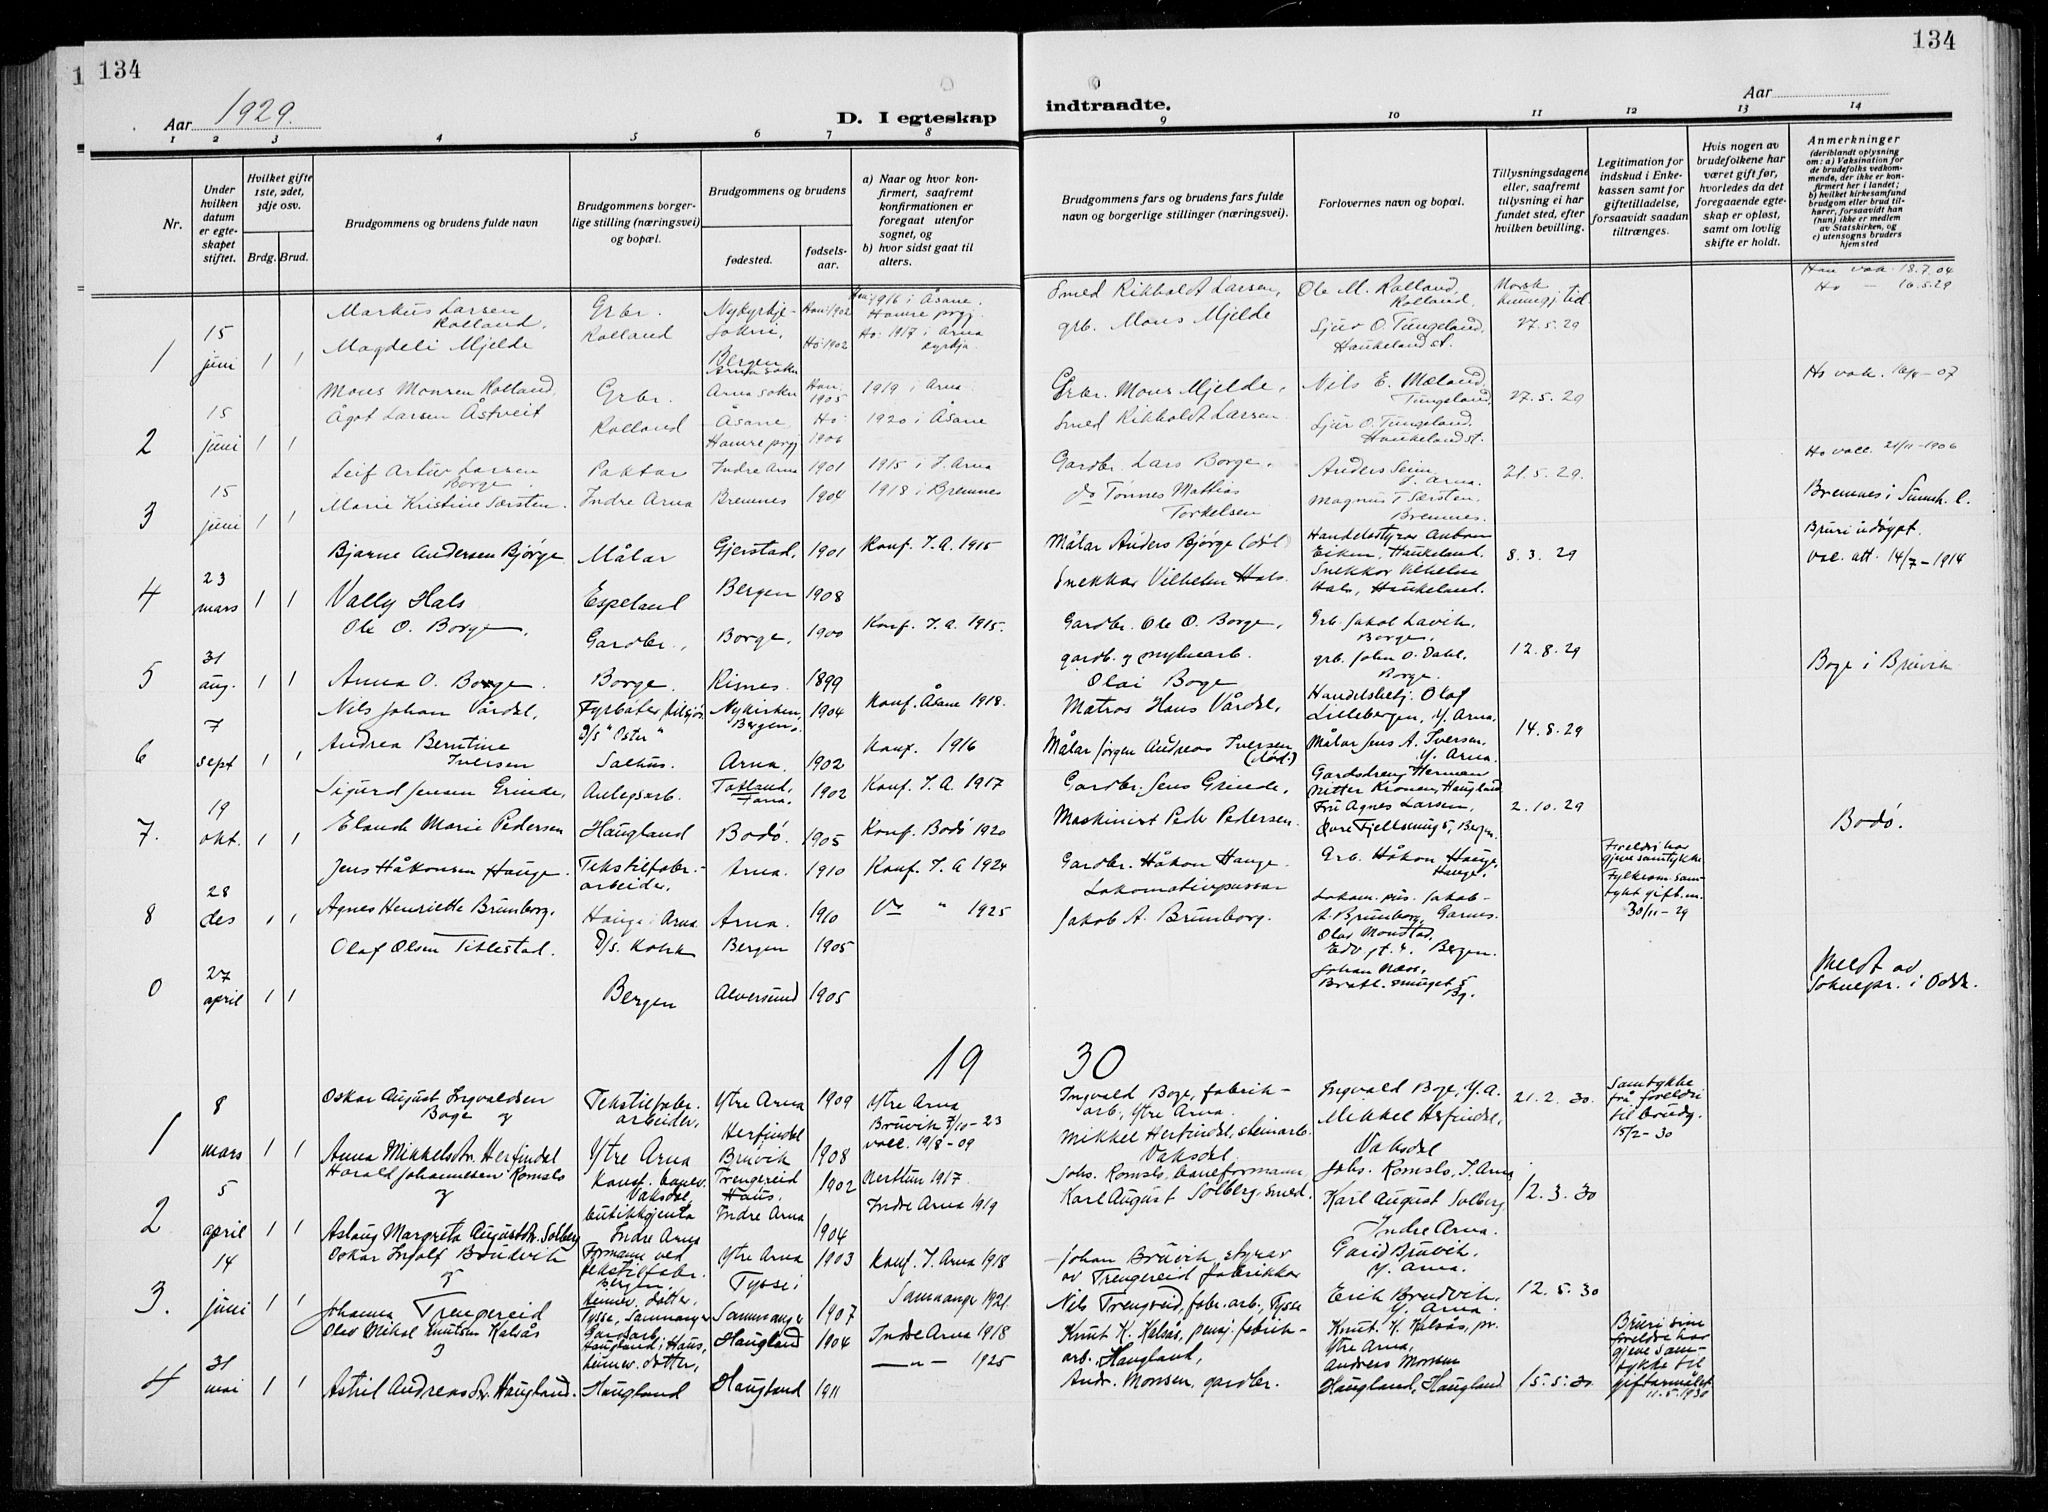 134
134
Aar 1929.
D. I egteskap
indtraadte.
Aar
1 2 3 4 5 6 7 8 9 10 11 12 13 14
Nr.
Under hvilken datum er egteskapet stiftet.
Hvilket gifte 1ste, 2det, 3dje osv.
Brdg. Brud.
Brudgommens og brudens fulde navn
Brudgommens borgerlige stilling (næringsvei) og bopæl.
Brudgommens og brudens
fødested.
fødselsaar.
a) Naar og hvor konfirmert, saafremt konfirmationen er foregaat utenfor sognet, og
b) hvor sidst gaat til alters.
Brudgommens fars og brudens fars fulde navn og borgerlige stillinger (næringsvei).
Forlovernes navn og bopæl.
Tillysningsdagene eller, saafremt tillysning ei har fundet sted, efter hvilken bevilling.
Legitimation for indskud i Enkekassen samt for giftetilladelse, forsaavidt saadan tiltrænges.
Hvis nogen av brudefolkene har været gift før, hvorledes da det foregaaende egteskap er opløst, samt om lovlig skifte er holdt.
Anmerkninger
(deriblandt oplysning om: a) Vaksination for de brudefolks vedkommende, der ikke er konfirmert her i landet; b) hvilket kirkesamfund brudgom eller brud tilhører, forsaavidt han (hun) ikke er medlem av Statskirken, og c) utensogns bruders hjemsted
1 15 juni 1 1
Markus Larsen Rolland.
Magdeli Mjelde
Grbr. Rolland
Nykyrkje-sokni, Bergen
Arna sokn
Han: 1902
Ho: 1902
Han: 1916 i Åsane. Hamre prgj.
Ho: 1917 i Arna kyrkja
Smed Rikholdt Larsen,
grb. Mons Mjelde
Ole M. Rolland, Rolland,
Sjur O. Tungeland, Haukeland st.
Norsk kunngj. tid 27.5.29
Han vak. 18.7.04
Ho — 16.5.29
2 15 juni 1 1
Mons Monsen Rolland
Ågot Larsen Åstveit
Grbr. Rolland
Arna sokn
Åsane, Hamre prgj
Han: 1905
Ho: 1906
1919 i Arna
1920 i Åsane
Grbr. Mons Mjelde,
Smed Rikholdt Larsen
Nils E. Mæland, Tungeland,
Sjur O. Tungeland, Haukeland st.
27.5.29
3 15 juni 1 1
Leif Artur Larsen Borge.
Marie Kristine Særsten.
Indre Arna
Indre Arna
Bremnes
1901
1904
1915 i I. Arna
1918 i Bremnes
Gardbr. Lars Borge.
do Tønnes Mattias Torkelsen
Anders Seim, I. Arna.
Magnus T. Særsten. Bremnes.
21.5.29
Ho vacc. 21/11-1906
Bremnes i Sunnh. l.
4 23 mars 1 1
Bjarne Andersen Bjørge
Vally Hals
Målar
Espeland
Gjerstad,
Bergen
1901
1908
Konf. I. A. 1915
Målar Anders Bjørge (død)
Snekkar Vilhelm Hals.
Handelsstyrar Anton Eiken, Haukeland.
Snekkar Vilhelm Hals, Haukeland.
8.3.29
Bruri udøypt.
vac. att. 14/7-1914
5 31 aug. 1 1
Ole O. Borge,
Anna O. Borge.
Gardbr.,
Borge.
Borge,
Risnes.
1900
1899
Konf. I. A. 1915.
Gardbr. Ole O. Borge,
gardb. og mylnearb. Olai Boge
Grb. Jakob Lavik, Borge.
grb. John O. Dahl, Borge.
12.8.29
Boge i Bruvik
6 7 sept 1 1
Nils Johan Vårdal,
Andrea Berntine Iversen
Fyrbøter
D/s "Oster"
Salhus.
Nykirken, Bergen.
Arna.
1904
1902
Konf. Åsane 1918.
Konf. 1916
Matros Hans Vårdal,
Målar Jørgen Andreas Iversen (død.)
Handelsbetj. Olaf Lillebergen, Y. Arna.
Målar Jens A. Iversen, Y. Arna.
14.8.29
7. 19 okt. 1 1
Sigurd Jensen Grinde,
Elaude Marie Pedersen
Anlegsarb.
Haugland
Totland, Fana.
Bodø.
1902
1905
Konf. I. A. 1917
Konf. Bodø 1920
Gardbr. Jens Grinde,
Maskinist Peder Pedersen.
Gardsdreng Herman Nitter Kronen, Haugland
Fru Agnes Larsen, Øvre Fjellsmug 5, Bergen.
2.10.29
Bodø.
8 28 des 1 1
Jens Håkonsen Hauge.
Agnes Henriette Brunborg.
Tekstilfabr.-arbeider,
Hauge i Arna
Arna.
Arna.
1910
1910
Konf. I. A 1924
" 1925
Gardbr. Håkon Hauge.
Lokomotivpussar Jakob A. Brunborg.
Grb. Håkon Hauge, Hauge.
Lokom. pus. Jakob A. Brunborg, Garnes.
Foreldri har gjeve samtykke.
Fylkesm. samtykt gift.m. 30/11-29
0 27 april 1 1
Olaf Olsen Titlestad.
D/s. Kokk
Bergen
Bergen
Alversund
1905
1905
Olav Monstad, Edv gt. 4. Bergen.
Johan Næss, Bratl. smuget 5 Bg.
Meldt av Soknepr. i Odda.
1930
1 8 mars 1 1
Oskar August Ingvaldsen Boge og
Anna Mikkelsdtr. Herfindal
Tekstilfabr. arbeider,
Ytre Arna
Ytre Arna
Herfindal Bruvik
1909
1908
Ytre Arna
Bruvik 7/10-23
vacc. 19/8-09
Ingvald Boge, fabrik-arb., Ytre Arna.
Mikkel Herfindal, steinarb. Vaksdal.
Ingvald Boge, Y. A.
Mikkel Herfindal, Vaksdal
21.2.30.
Samtykke frå foreldri til brudg. 15/2-30
2 5 april 1 1
Harald Johannesen Romslo og
Aslaug Margreta Augustdtr. Solberg
Vaksdal,
butikkgjenta Indre Arna
Trengereid Haus.
Indre Arna
1902
1904
Nesttun 1917.
Indre Arna 1919
Johs. Romslo, baneformann
Karl August Solberg, smed.
Johs. Romslo, I. Arna
Karl August Solberg Indre Arna.
12.3.30
3. 14 juni 1 1
Oskar Ingolf Brudvik og
Johanna Trengereid
Formann ved tekstilfabr. Bergen
heimev. dotter. Tysse, Samnanger
Ytre Arna
Tysse i Samnanger
1903
1907
Konf. I. Arna 1918
Samnanger 1921.
Johan Bruvik, styrar av Trengereid fabrikkar
Nils Trengreid, fabr. arb., Tysse
Bruvik, Y. Arna.
Erik Brudvik, Y. Arna.
12.5.30
4 31 mai 1 1
Olav Mikal Knutsen Kalsås og
Astrid Andreasdtr. Haugland.
Gardsarb. Haugland i Haus,
heimev. dotter, Haugland
Haugland
Haugland
1904
1911
Indre Arna 1918
—"— 1925
Knut K. Kalsås, pensj. fabrik-arb., Haugland,
Andr. Monsen, gardbr.
Knut. K. Kalsås, pr. Ytre Arna,
Andreas Monsen Haugland, Haugland
15.5.30
Bruri sine foreldre har gjeve samtykke til giftarmålet 11.5.1930